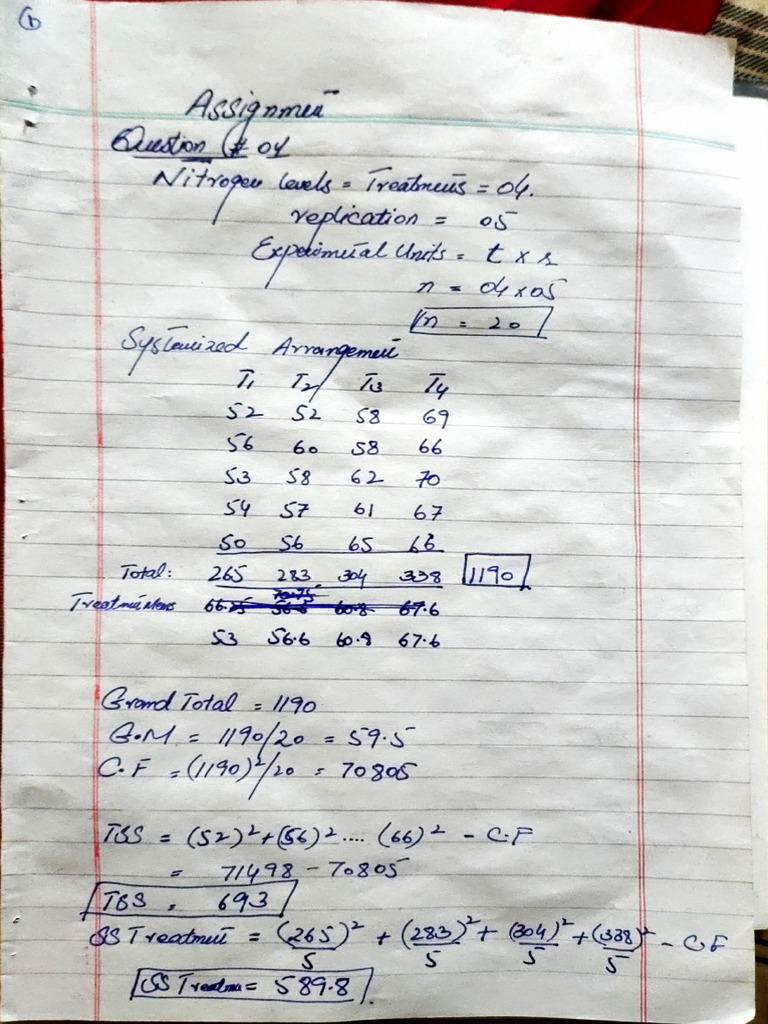 Assignment
Question # 04
Nitrogen levels = Treatments = 04.
replication = 05
Experimental Units = t × r
n = 04 × 05
n = 20
Systemized Arrangement
T1 T2 T3 T4
52 52 58 69
56 60 58 66
53 58 62 70
54 57 61 67
50 56 65 66
Total: 265 283 304 338 1190
Treatment Means
53 56.6 60.8 67.6
Grand Total = 1190
G.M = 1190/20 = 59.5
C.F = (1190)²/20 = 70805
TSS = (52)² + (56)² .... (66)² - C.F
= 71498 - 70805
TSS = 693
SS Treatment = (265)²/5 + (283)²/5 + (304)²/5 + (338)²/5 - C F
SS Treatm = 589.8